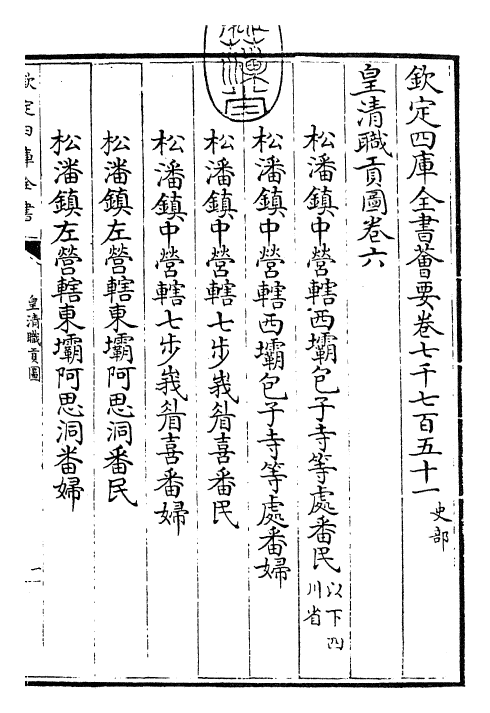 欽定四庫全書薈要卷七千七百五十一 史部
皇清職貢圖卷六
松潘鎮中營轄西壩包子寺等處番民 以下四川省
松潘鎮中營轄西壩包子寺等處番婦
松潘鎮中營轄七步峩眷喜番民
松潘鎮中營轄七步峩眷喜番婦
松潘鎮左營轄東壩阿思洞番民
松潘鎮左營轄東壩阿思洞番婦
欽定四庫全書
皇清職貢圖
一